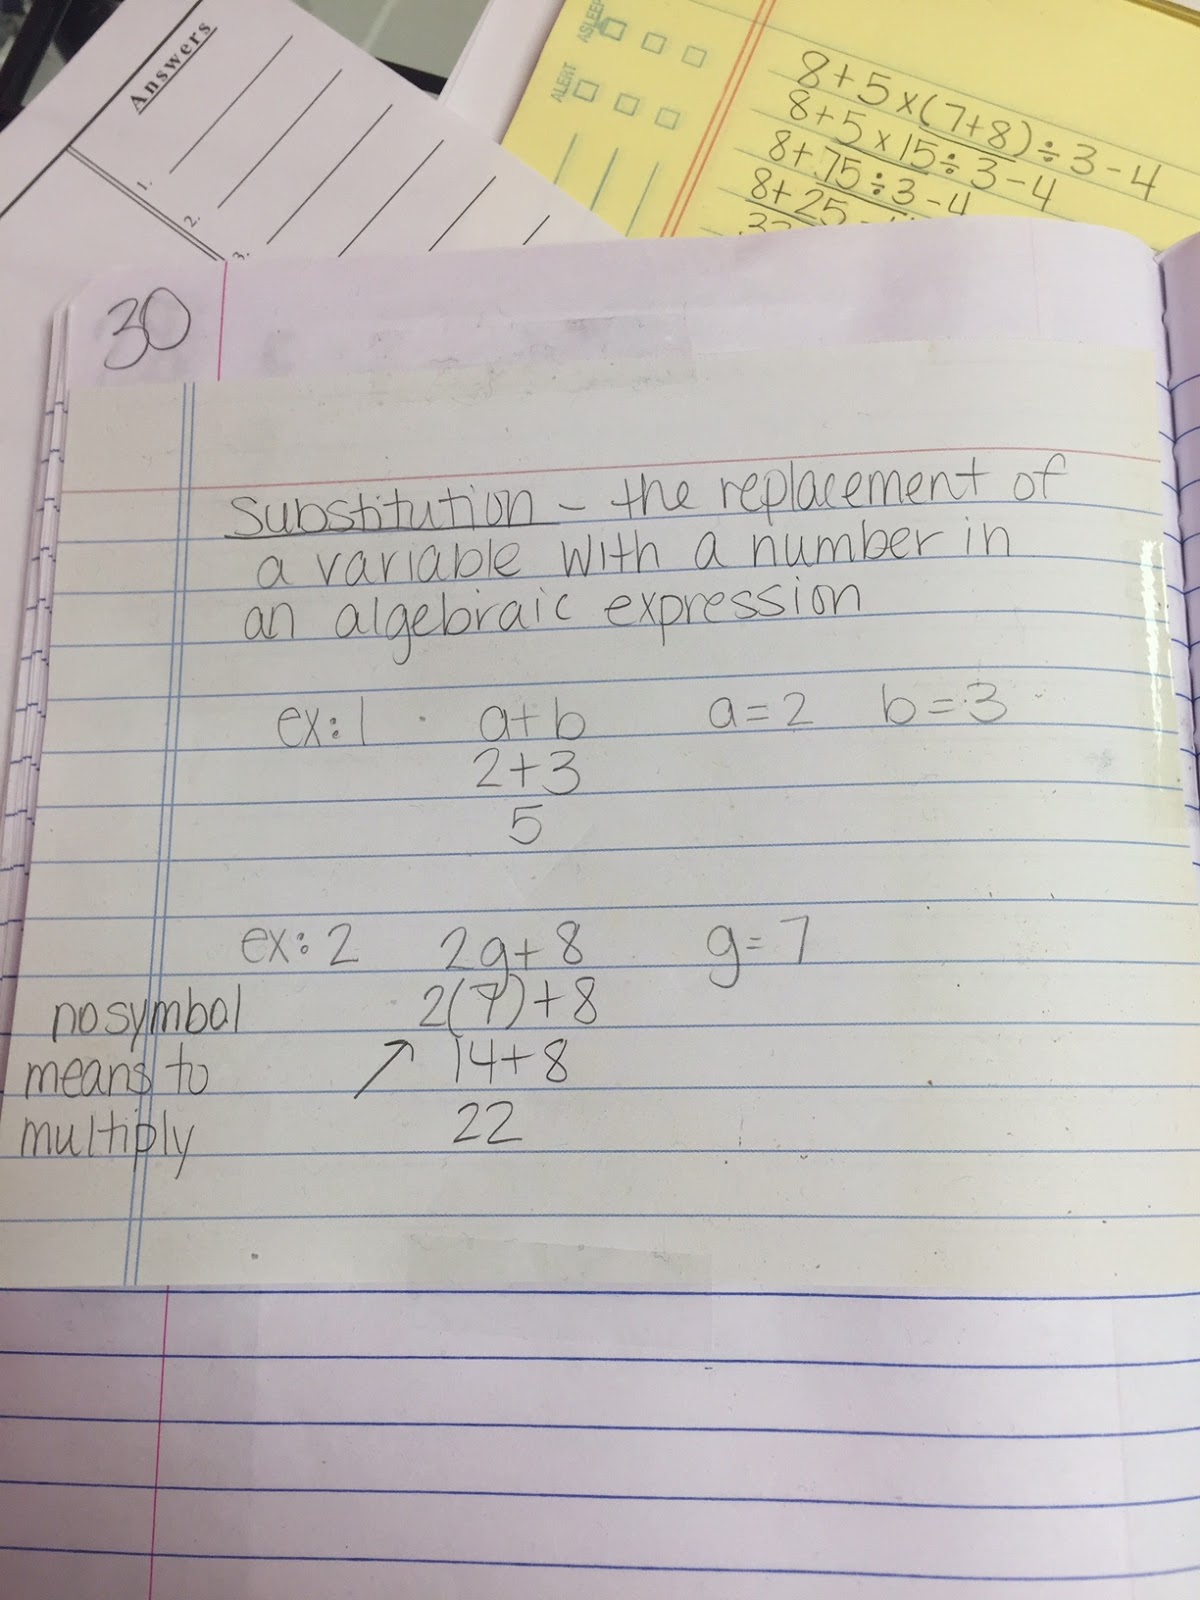 Answers
1.
2.
3.
ASLEEP
ALERT
8+5×(7+8)÷3-4
8+5×15÷3-4
8+75÷3-4
8+25
30
Substitution - the replacement of
a variable with a number in
an algebraic expression
ex: 1 a+b a=2 b=3
2+3
5
ex: 2 2g+8 g=7
no symbal 2(7)+8
means to ↗ 14+8
multiply 22